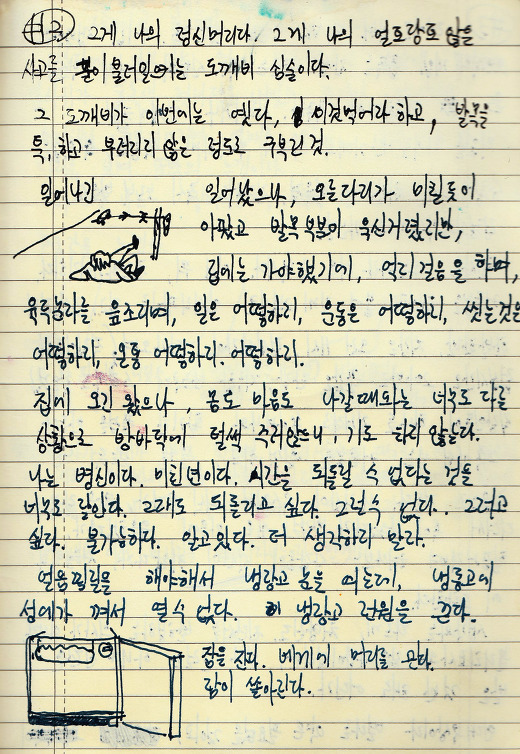 그게 나의 정신머리다. 그게 나의 얼토당토 않은
사고를 불러일으키는 도깨비 심술이다.
그 도깨비가 이번에는 옛다, 이것먹어라 하고, 발목을
툭, 하고 부러지지 않을 정도로 구부린 것.
일어나긴 일어났으나, 오른다리가 미칠듯이
아팠고 발목 부분이 욱신거렸지만,
집에는 가야했기에, 억지 걸음을 하며,
육두문자를 읊조리며, 일은 어떻하리, 운동은 어떻하리, 씻는것은
어떻하리, 온통 어떻하리. 어떻하리.
집에 오긴 왔으나, 몸도 마음도 나갈때와는 너무도 다른
상황으로 방바닥에 털썩 주저앉으니, 기도 차지 않는다.
나는 병신이다. 미친년이다. 시간을 되돌릴 수 없다는 것을
너무도 잘안다. 그래도 되돌리고 싶다. 그럴수 없다. 그러고
싶다. 불가능하다. 알고있다. 더 생각하지 말자.
얼음찜질을 해야해서 냉장고 문을 여는데, 냉동고에
성에가 껴서 열수 없다. 냉장고 전원을 끈다.
잠을 잔다. 베게에 머리를 댄다.
잠이 쏟아진다.